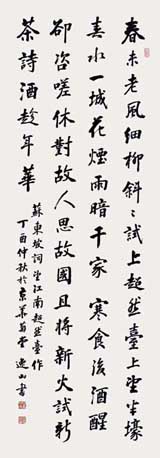 春未老風細柳斜〻試上超然臺上望半壕
春水一城花煙雨暗千家 寒食後酒醒
卻咨嗟休對故人思故國且將新火試新
茶詩酒趁年華
蘇東坡詞望江南超然臺作
丁酉仲秋於京華 逸山書